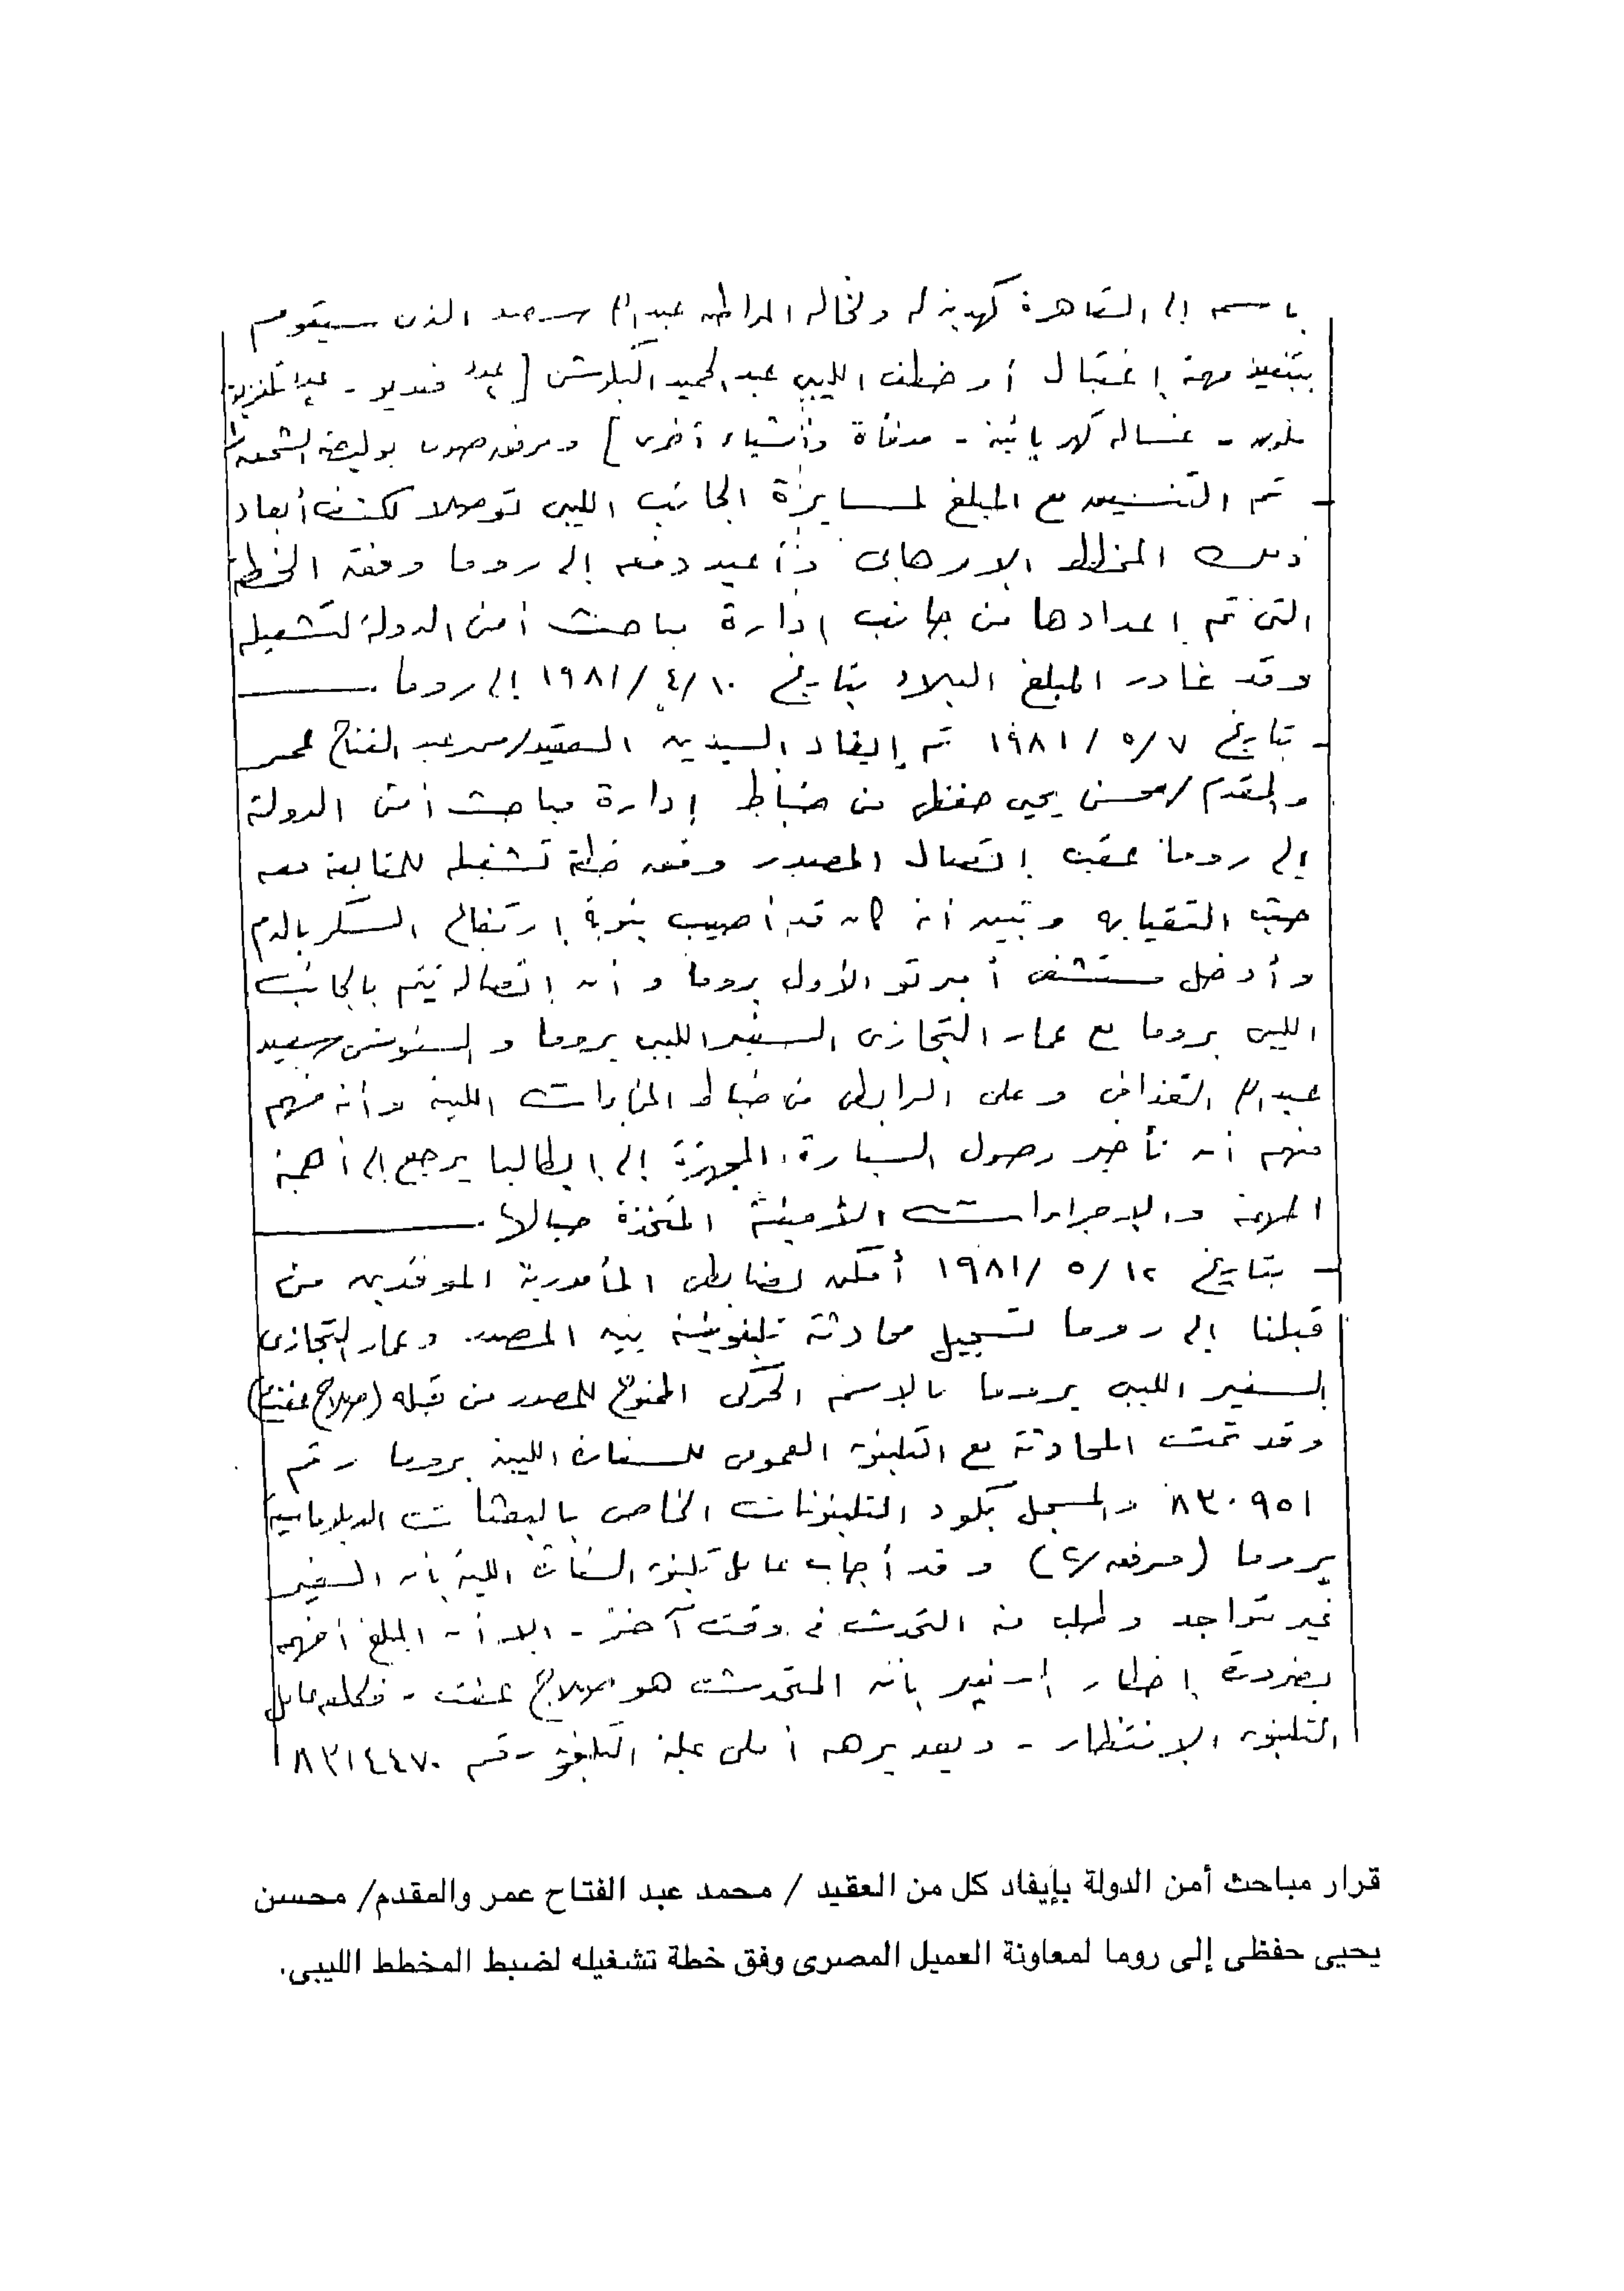 باسمه إلى القاهرة كهدية له ولخاله المواطن عبدالله سعد الذى سيقوم
بتنفيذ مهمة إغتيال أو خطف الليبى عبد الحميد البكوش [ عدد فيديو - عدد تلفزيون
ملون - غسالة كهربائية - مدفأة وأشياء أخرى ] ومرفق صورة بوليصة الشحن
- تم التنسيق مع المبلغ لمسايرة الجانب الليبى توصلا لكشف أبعاد
ذلك المخطط الإرهابى وأعيد دفعه إلى روما وفقه الخطة
التى تم إعدادها من جانب إدارة مباحث أمن الدولة لتشغيله
وقد غادر المبلغ البلاد بتاريخ ١٠/٤/١٩٨١ إلى روما.
- بتاريخ ٧/٥/١٩٨١ تم إيفاد السيدين العقيد/محمد عبد الفتاح عمر
والمقدم/محسن يحيى حفظى من ضباط إدارة مباحث أمن الدولة
إلى روما عقب إتصال المصدر وفق خطة تشغيله للمتابعة معه
حيث التقيا به وتبين أنه كان قد أصيب بنوبة إرتفاع السكر بالدم
وأدخل مستشفى أمبرتو الأول بروما وأن إتصاله يتم بالجانب
الليبى بروما مع عمار التجازى السفير الليبى بروما والسنوسى سعيد
عبدالله القذافى وعلى الرابطى من ضباط المخابرات الليبية وأنه فهم
منهم أن تأخير وصول السيارة المجهزة إلى إيطاليا يرجع إلى أهمية
المهمة والإجراءات الأمنية المتخذة حيالها.
- بتاريخ ١٢/٥/١٩٨١ أمكن لضابطى المأمورية الموفدين من
قبلنا إلى روما تسجيل محادثة تليفونية بين المصدر وعمار التجازى
السفير الليبى بروما بالاسم الحركى الممنوح للمصدر من قبله (صلاح عفيفى)
وقد تمت المحادثة مع التليفون العمومى للسفارة الليبية بروما رقم
٨٣٠٩٥١ والمسجل بكود التليفونات الخاص بالبعثات الدبلوماسية
بروما (مرفق/٢) وقد أجاب عامل تليفون السفارة الليبية بأن السفير
غير متواجد وطلب منه التحدث فى وقت آخر - إلا أن المبلغ أفهمه
بضرورة إخطار السفير بأن المتحدث هو صلاح عفيفى - فكلفه عامل
التليفون الإنتظار - وبعد برهه أملى عليه التليفون رقم ٨٣١٤٤٧٠
قرار مباحث أمن الدولة بإيفاد كل من العقيد / محمد عبد الفتاح عمر والمقدم/ محسن
يحيى حفظى إلى روما لمعاونة العميل المصرى وفق خطة تشغيله لضبط المخطط الليبى.